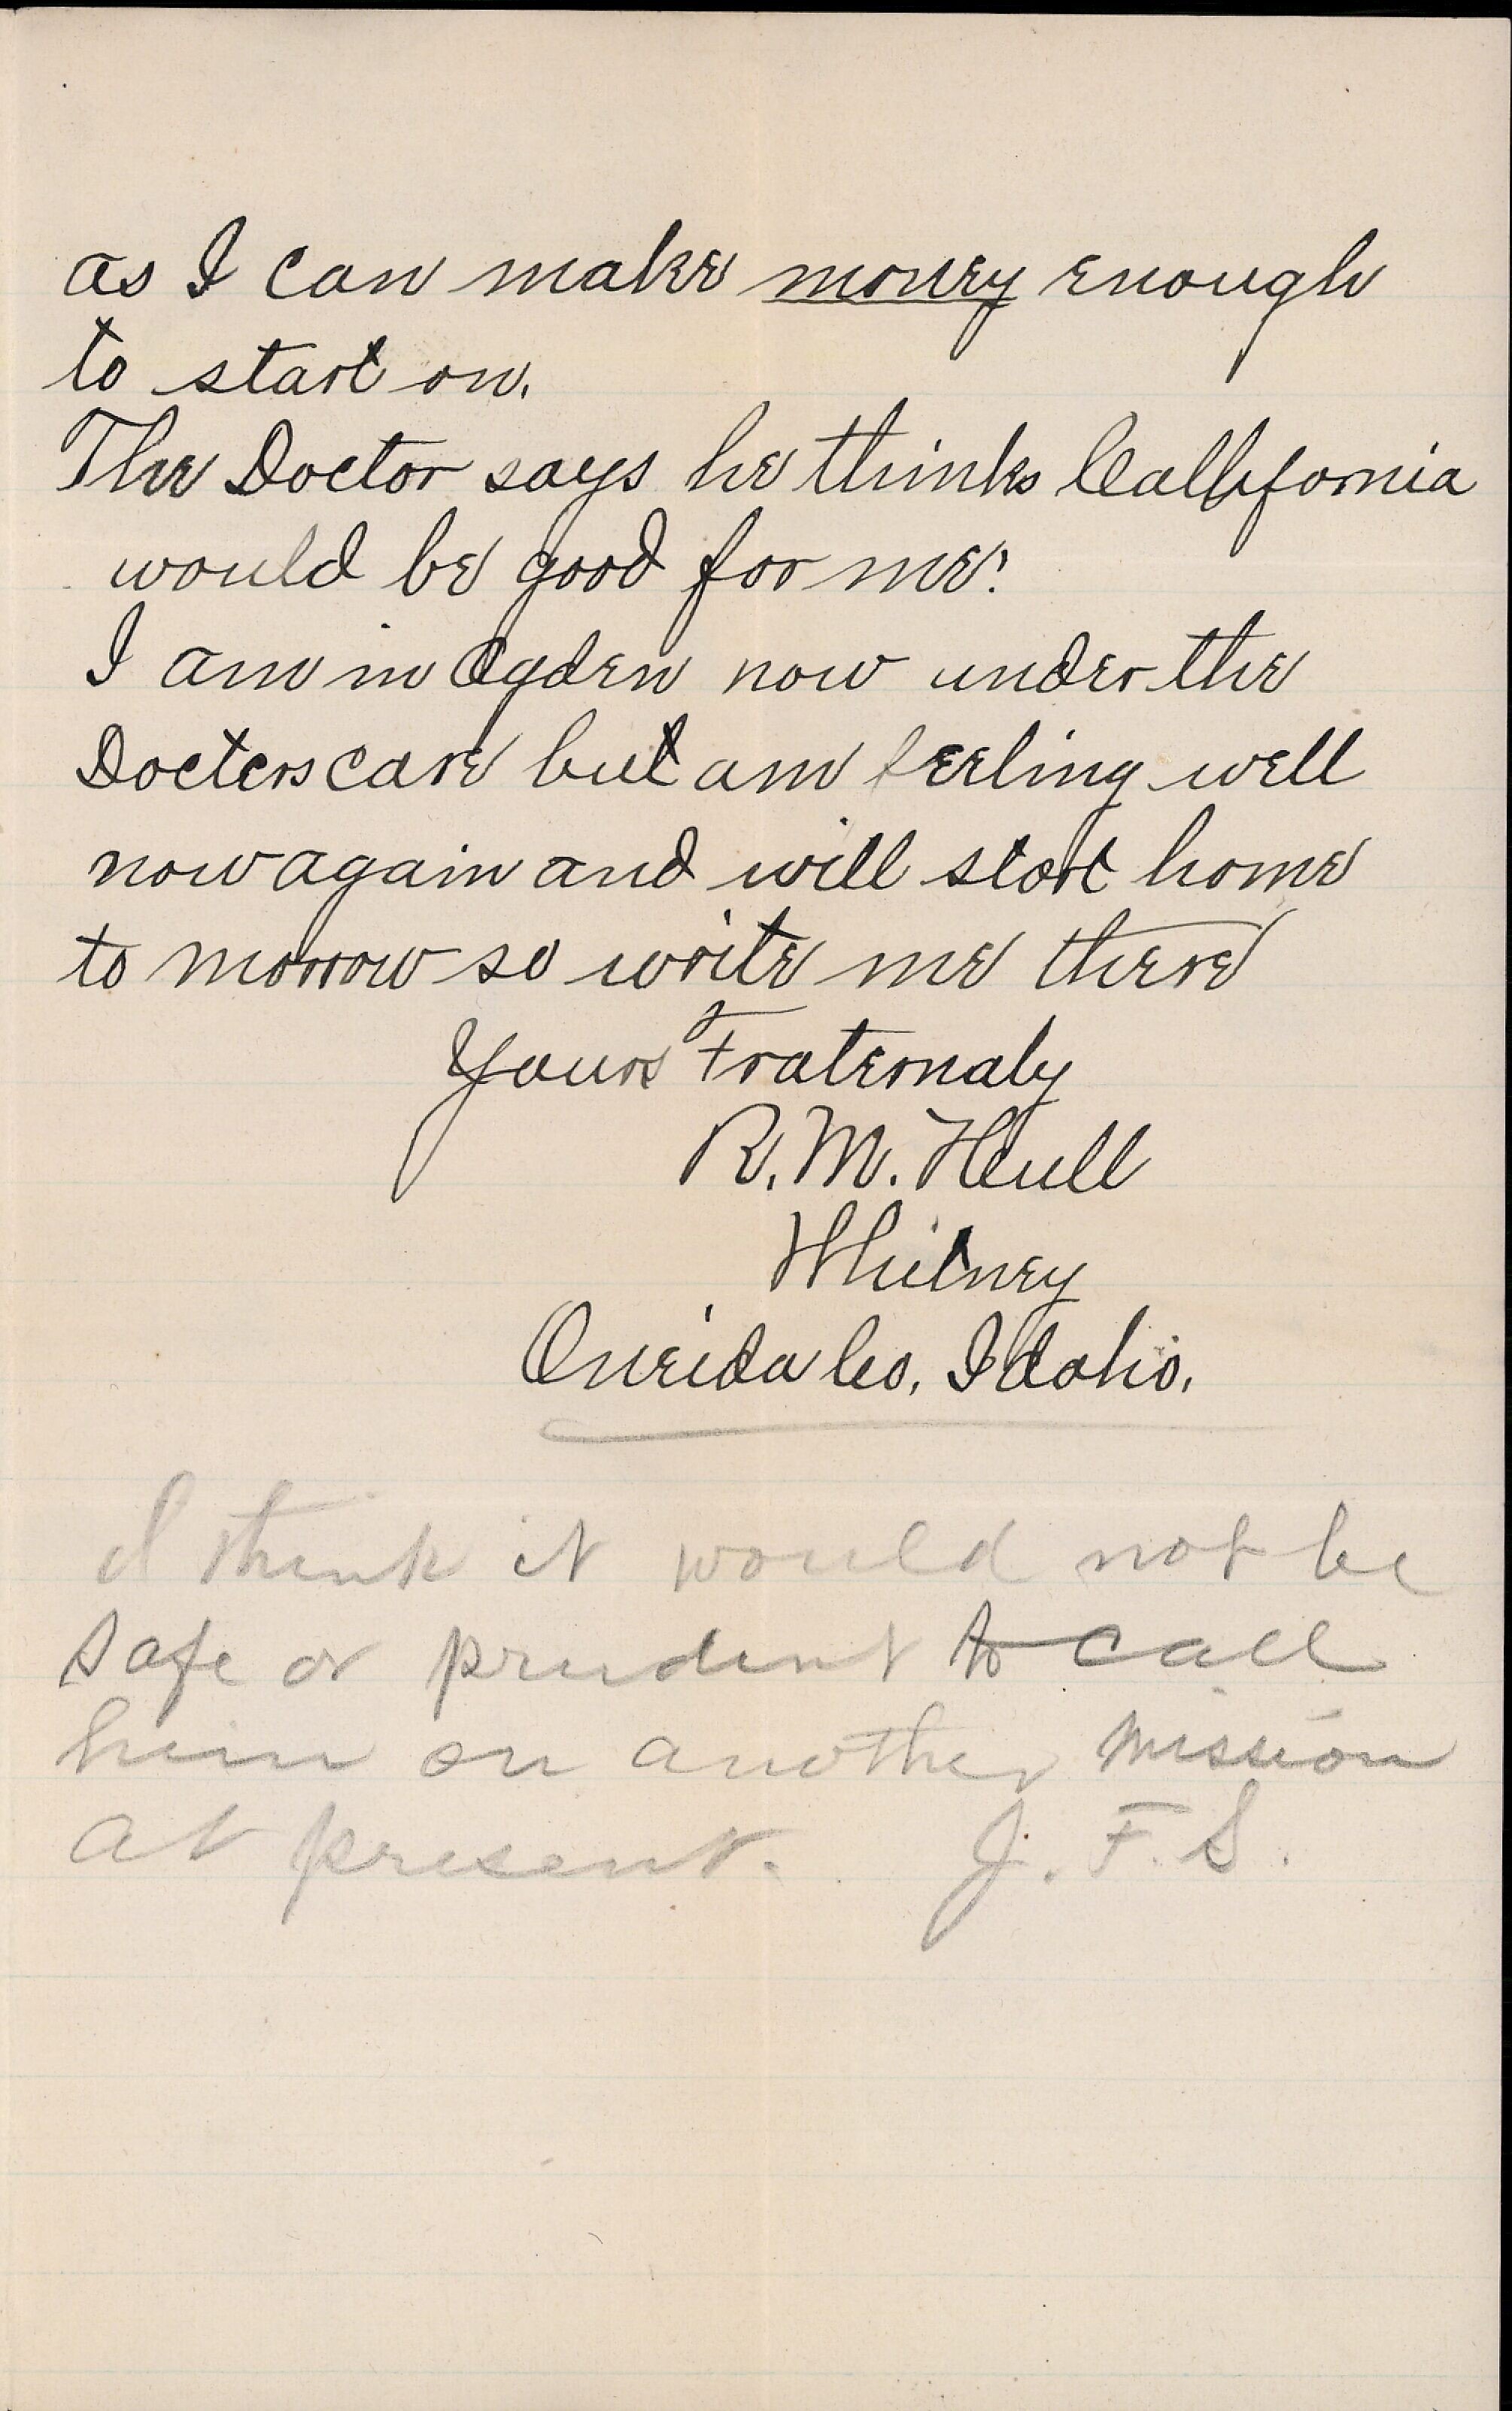 as I can make money enough
to start on.
The Doctor says he thinks California
would be good for me.
I am in Ogden now under the
Docters care but am feeling well
now again and will start home
to morrow so write me there
Yours Fraternaly
R. M. Hull
Whitney
Oneida Co. Idaho.
I think it would not be
safe or prudent to call
him on another mission
at present. J. F. S.